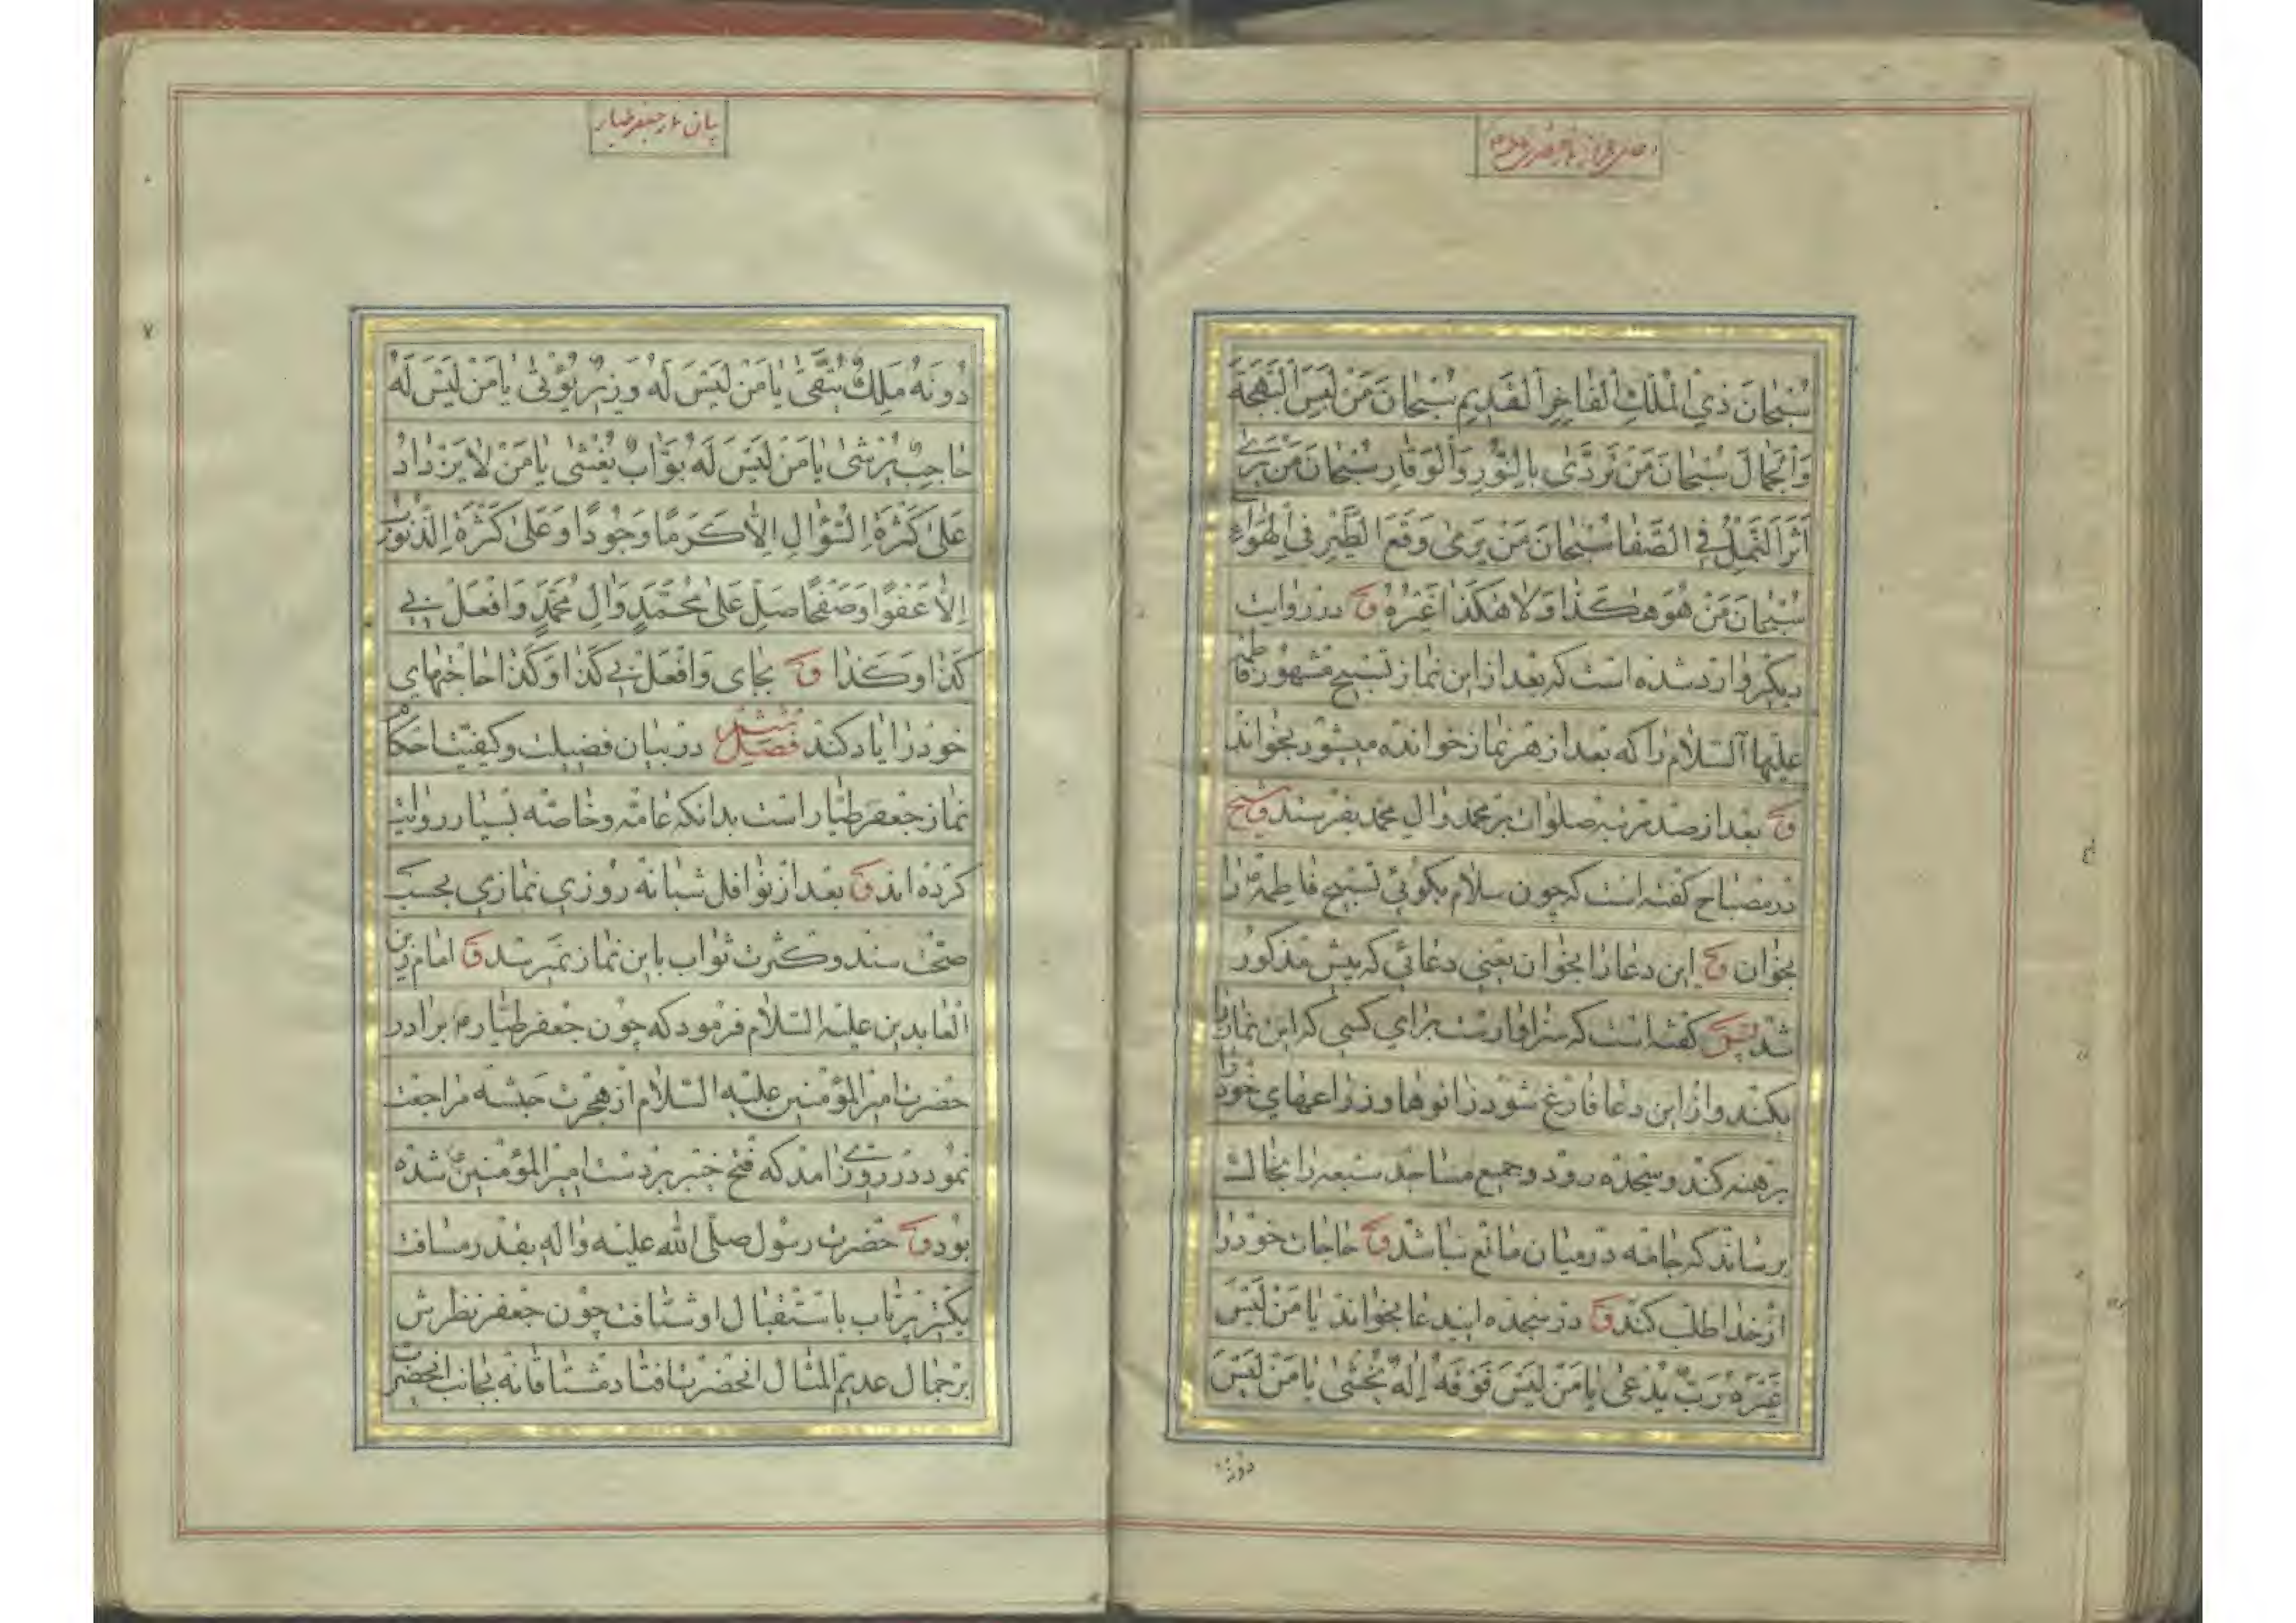 سُبْحانَ ذِي الْمُلْكِ الْفاخِرِ الْقَدِيمِ سُبْحانَ مَنْ لَبِسَ الْبَهْجَةَ
وَالْجَمالَ سُبْحانَ مَنْ تَرَدّىٰ بِالنُّورِ وَالْوَقارِ سُبْحانَ مَنْ يَرىٰ
اَثَرَ النَّمْلِ فِي الصَّفا سُبْحانَ مَنْ يَرىٰ وَقْعَ الطَّيْرِ فِي الْهَوآءِ
سُبْحانَ مَنْ هُوَ هٰكَذا وَلا هٰكَذا غَيْرُهُ و در روایت
دیگر وارد شده است که بعد از این نماز تسبیح مشهور فاطمه
علیها السلام را که بعد از هر نماز خوانده میشود بخواند
و بعد از صد مرتبه صلوات بر محمد وال محمد بفرستد و شیخ
در مصباح کفته است که چون سلام بکوئی تسبیح فاطمه را
بخوان و این دعا را بخوان یعنی دعائی که پیش مذکور
شد پس کفته است که سزاوار است برای کسی که این نماز را
بکند و از این دعا فارغ شود زانوها و ذراعهای خود را
برهنه کند و بسجده رود و جمیع مساجد سبعه را بخاک
برساند که جامه در میان مانع نباشد و حاجات خود را
از خدا طلب کند و در سجده ایندعا بخواند یا مَنْ لَیْسَ
غَیْرَهُ رَبٌّ یُدْعیٰ یا مَنْ لَیْسَ فَوْقَهُ اِلٰهٌ یُخْشیٰ یا مَنْ لَیْسَ
دونه
بیان نماز جعفر طیار
دُونَهُ مَلِكٌ یُتَّقیٰ یا مَنْ لَیْسَ لَهُ وَزِیرٌ یُؤْتیٰ یا مَنْ لَیْسَ لَهُ
حاجِبٌ یُرْشیٰ یا مَنْ لَیْسَ لَهُ بَوّابٌ یُغْشیٰ یا مَنْ لا یَزْدادُ
عَلیٰ كَثْرَةِ السُّؤالِ اِلّا كَرَمًا وَجُودًا وَعَلیٰ كَثْرَةِ الذُّنُوبِ
اِلّا عَفْوًا وَصَفْحًا صَلِّ عَلیٰ مُحَمَّدٍ وَالِ مُحَمَّدٍ وَافْعَلْ بِی
كَذا وَكَذا و بجای وَافْعَلْ بِی كَذا وَكَذا حاجتهای
خود را یاد کند فصل ششم در بیان فضیلت و کیفیت احکام
نماز جعفر طیار است بدانکه عامه و خاصه بسیار روایت
کرده اند و بعد از نوافل شبانه روزی نمازی بحسب
صحت سند و کثرت ثواب باین نماز نمیرسد و امام زین
العابدین علیه السلام فرمود که چون جعفر طیار برادر
حضرت امیر المؤمنین علیه السلام از هجرت حبشه مراجعت
نمود در روزی آمد که فتح خیبر بر دست امیر المؤمنین شده
بود و حضرت رسول صلی الله علیه واله بقدر مسافت
یکتیر پرتاب باستقبال او شتافت چون جعفر نظرش
بر جمال عدیم المثال انحضرت افتاد مشتاقانه بجانب انحضرت